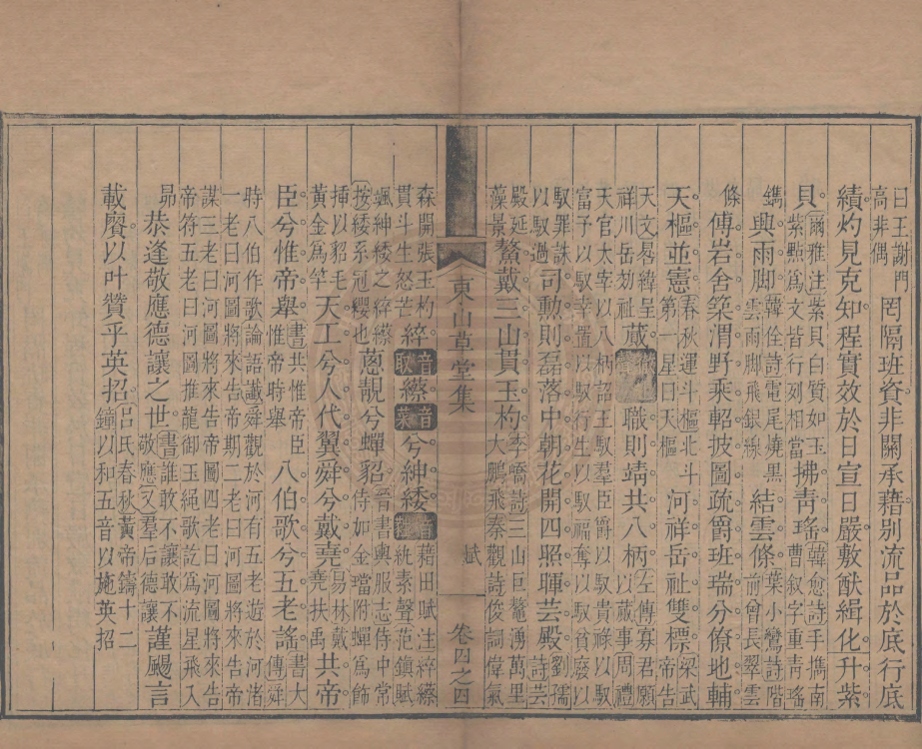 曰王謝門高非偶罔隔班資非關承藉別流品於底行底
績灼見克知程實效於日宣日嚴敷猷緝化升紫
貝爾雅注紫貝白質如玉紫點爲文皆行列相當拂靑瑤韓愈詩手擕南曹叙字重靑瑤
鐫興雨脚韓偓詩電尾燒黑雲雨脚飛銀線結雲條葉小鸞詩階前曾長翠雲
條傅岩舍築渭野乘軺披圖疏爵班瑞分僚地輔
天樞並憲春秋運斗樞北斗第一星曰天樞河祥岳祉雙標梁武帝告
天文晷緯呈祥川岳効祉蕆職則靖共八柄左傳寡君願以蕆事周禮
天官太宰以八柄詔王馭羣臣爵以馭貴祿以馭富予以馭幸置以馭行生以馭福奪以馭貧廢以
馭罪誅以馭過司勳則磊落中朝花開四照暉芸殿劉孺詩芸
殿延藻景鰲戴三山貫玉杓李嶠詩三山巨鼇湧萬里大鵬飛秦觀詩俊詞偉氣
東山草堂集 賦 卷四之四
森開張玉杓貫斗生怒芒綷音縩音兮紳緌音藉田賦注綷縩紈素聲范鎭賦
颯紳緌之綷縩按緌系冠纓也蔥靚兮蟬貂晉書輿服志侍中常侍如金璫附蟬爲飾
揷以貂毛黃金爲竿天工兮人代翼舜兮戴堯易林戴堯扶禹共帝
臣兮惟帝舉書共惟帝臣惟帝時舉八伯歌兮五老謠書大傳舜
時八伯作歌論語讖舜觀於河有五老遊於河渚一老曰河圖將來告帝期二老曰河圖將來告帝
謀三老曰河圖將來告帝圖四老曰河圖將來告帝符五老曰河圖推龍御玉繩歌訖爲流星飛入
昴恭逢敬應德讓之世書誰敢不讓敢不敬應又羣后德讓謹颺言
載賡以叶贊乎英招呂氏春秋黃帝鑄十二鐘以和五音以施英招